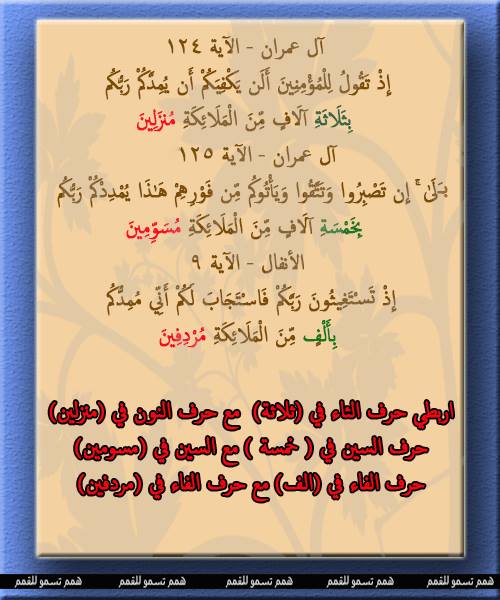 آل عمران - الآية ١٢٤
إِذْ تَقُولُ لِلْمُؤْمِنِينَ أَلَن يَكْفِيَكُمْ أَن يُمِدَّكُمْ رَبُّكُم
بِثَلَاثَةِ آلَافٍ مِّنَ الْمَلَائِكَةِ مُنزَلِينَ
آل عمران - الآية ١٢٥
بَلَىٰ ۚ إِن تَصْبِرُوا وَتَتَّقُوا وَيَأْتُوكُم مِّن فَوْرِهِمْ هَٰذَا يُمْدِدْكُمْ رَبُّكُم
بِخَمْسَةِ آلَافٍ مِّنَ الْمَلَائِكَةِ مُسَوِّمِينَ
الأنفال - الآية ٩
إِذْ تَسْتَغِيثُونَ رَبَّكُمْ فَاسْتَجَابَ لَكُمْ أَنِّي مُمِدُّكُم
بِأَلْفٍ مِّنَ الْمَلَائِكَةِ مُرْدِفِينَ
اربطي حرف الثاء في (ثلاثة) مع حرف النون في (منزلين)
حرف السين في ( خمسة ) مع السين في (مسومين)
حرف الفاء في (الف) مع حرف الفاء في (مردفين)
همم تسمو للقمم همم تسمو للقمم همم تسمو للقمم همم تسمو للقمم همم تسمو للقمم